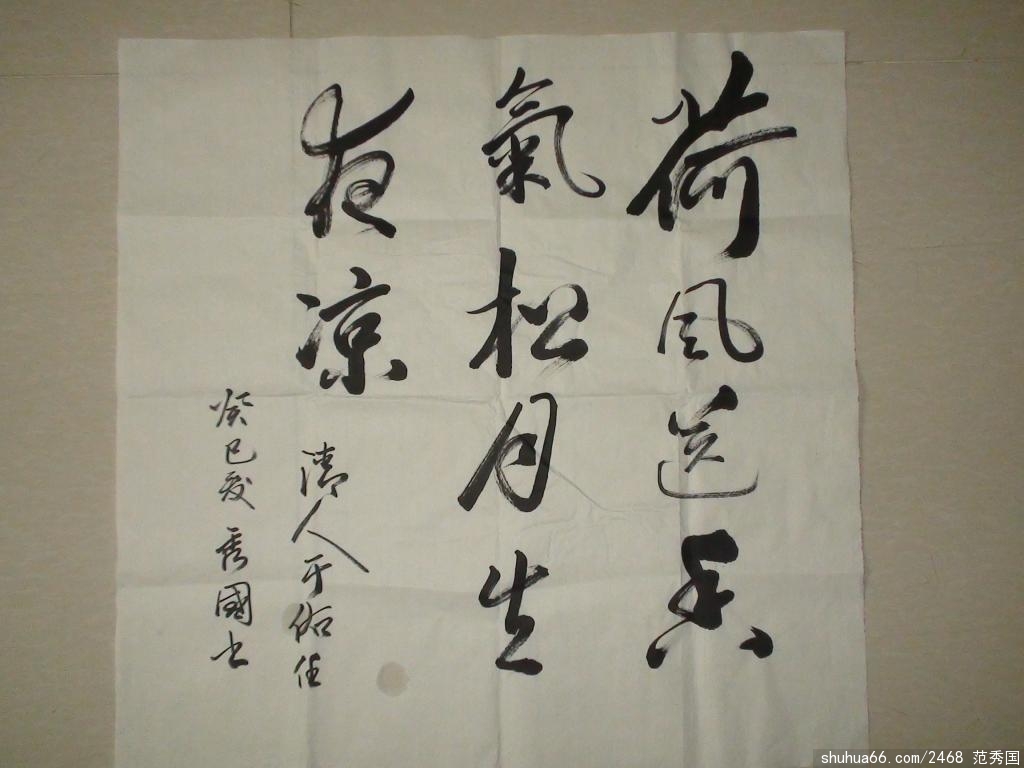 荷风送香
氣松月生
夜凉
清人于佑任
癸巳夏秀國书
shuhua66.com/2468 范秀国